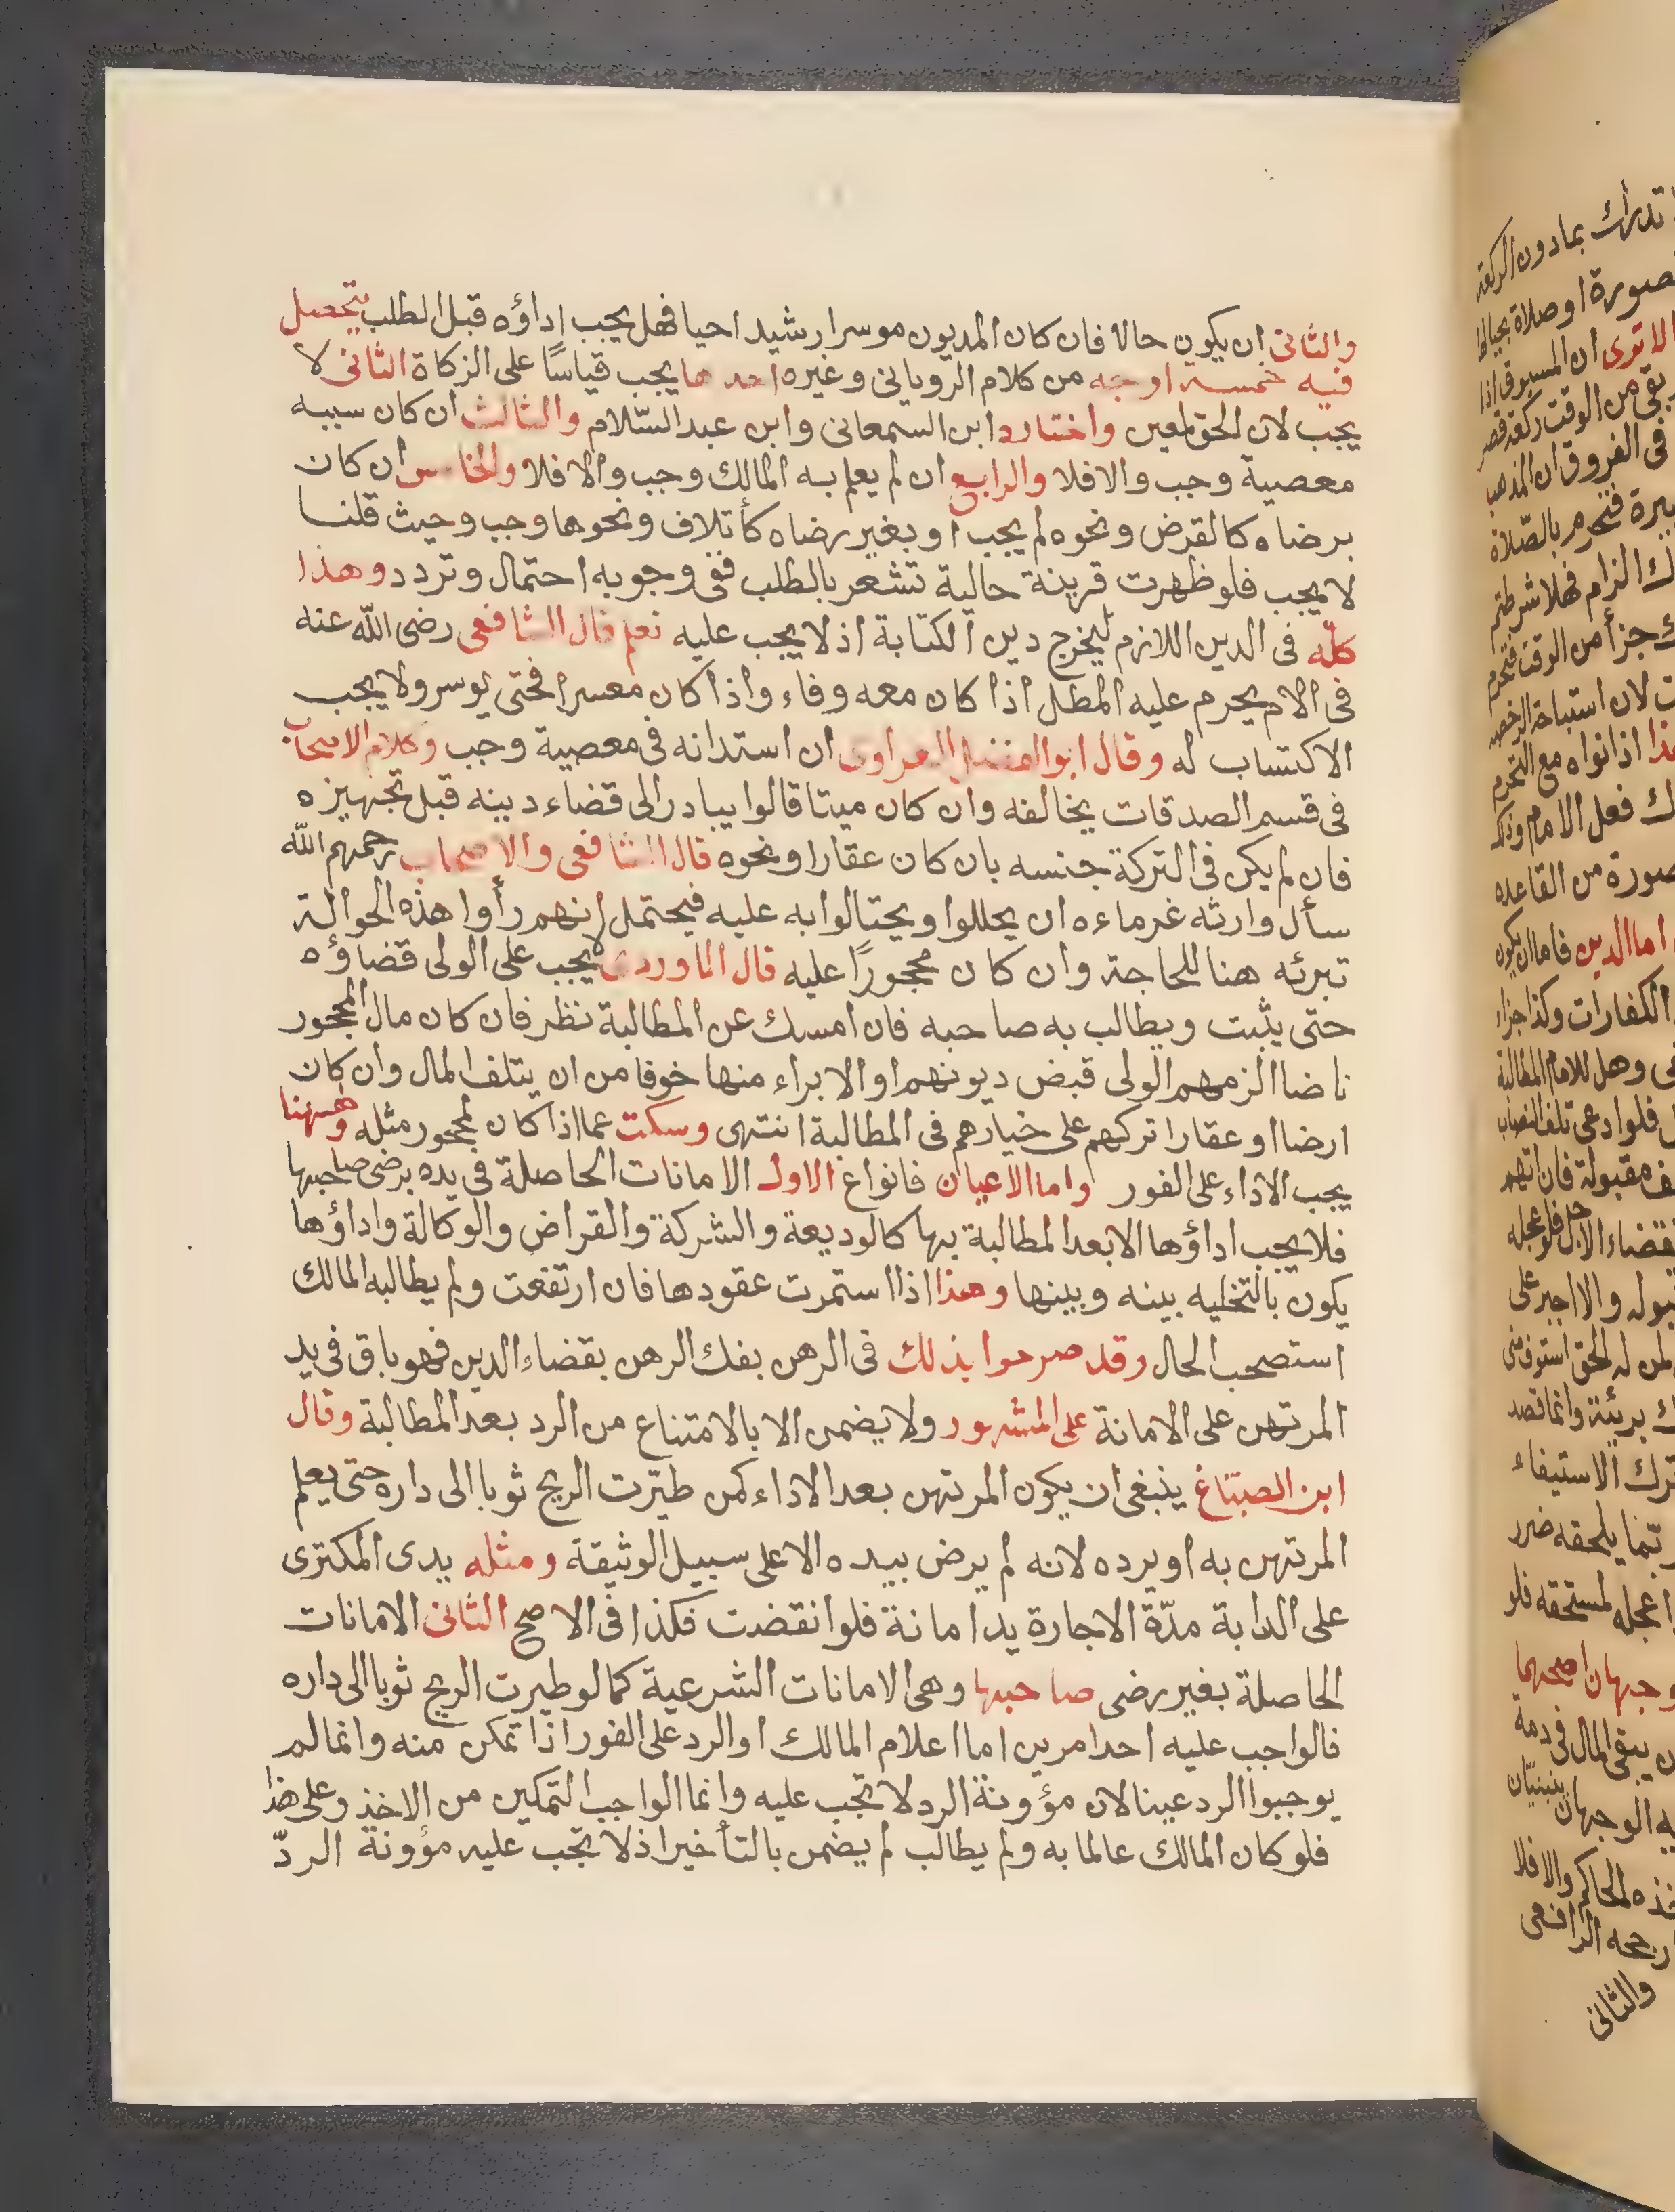 والثانى ان يكون حالا فان كان المديون موسرا رشيدا حيا فهل يجب اداؤه قبل الطلب يتحصل
فيه خمسة اوجه من كلام الرويانى وغيره احدها يجب قياسًا على الزكاة الثانى لا
يجب لان الحق لمعين واختاره ابن السمعانى وابن عبد السّلام والثالث ان كان سببه
معصية وجب والا فلا والرابع ان لم يعلم به المالك وجب والا فلا والخامس ان كان
برضاه كالقرض ونحوه لم يجب او بغير رضاه كأتلاف ونحوها وجب وحيث قلنا
لا يجب فلو ظهرت قرينة حالية تشعر بالطلب ففى وجوبه احتمال وتردد وهذا
كلّه فى الدين اللازم ليخرج دين الكتابة اذ لا يجب عليه نعم قال الشافعى رضى الله عنه
فى الام يحرم عليه المطل اذا كان معه وفاء واذا كان معسرا فحتى يوسر ولا يجب
الاكتساب له وقال ابو الفضل الفراوى ان استدانه فى معصية وجب وكلام الاصحاب
فى قسم الصدقات يخالفه وان كان ميتا قالوا يبادر الى قضاء دينه قبل تجهيزه
فان لم يكن فى التركة جنسه بان كان عقارا ونحوه قال الشافعى والاصحاب رحمهم الله
سأل وارثه غرماءه ان يحللوا ويحتالوا به عليه فيحتمل انهم رأوا هذه الحوالة
تبرئه هنا للحاجة وان كان محجورًا عليه قال الماوردى لا يجب على الولى قضاؤه
حتى يثبت ويطالب به صاحبه فان امسك عن المطالبة نظر فان كان مال المحجور
ناضا الزمهم الولى قبض ديونهم او الابراء منها خوفا من ان يتلف المال وان كان
ارضا او عقارا تركهم على خيارهم فى المطالبة انتهى وسكت عما اذا كان لمحجور مثله وههنا
يجب الاداء على الفور واما الاعيان فانواع الاول الامانات الحاصلة فى يده برضى صاحبها
فلا يجب اداؤها الا بعد المطالبة بها كالوديعة والشركة والقراض والوكالة واداؤها
يكون بالتخليه بينه وبينها وهذا اذا استمرت عقودها فان ارتفعت ولم يطالبه المالك
استصحب الحال وقد صرحوا بذلك فى الرهن بفك الرهن بقضاء الدين فهو باق فى يد
المرتهن على الامانة على المشهور ولا يضمن الا بالامتناع من الرد بعد المطالبة وقال
ابن الصبّاغ ينبغى ان يكون المرتهن بعد الاداء كمن طيّرت الريح ثوبا الى داره حتى يعلم
المرتهن به او يرده لانه لم يرض بيده الا على سبيل الوثيقة ومثله يدى المكترى
على الدابة مدّة الاجارة يد امانة فلو انقضت فكذا فى الاصح الثانى الامانات
الحاصلة بغير رضى صاحبها وهى الامانات الشرعية كما لو طيرت الريح ثوبا الى داره
فالواجب عليه احد امرين اما اعلام المالك او الرد على الفور اذا تمكن منه وانما لم
يوجبوا الرد عينا لان مؤونة الرد لا تجب عليه وانما الواجب التمكين من الاخذ وعلى هذا
فلو كان المالك عالما به ولم يطالب لم يضمن بالتأخير اذ لا تجب عليه مؤونة الردّ